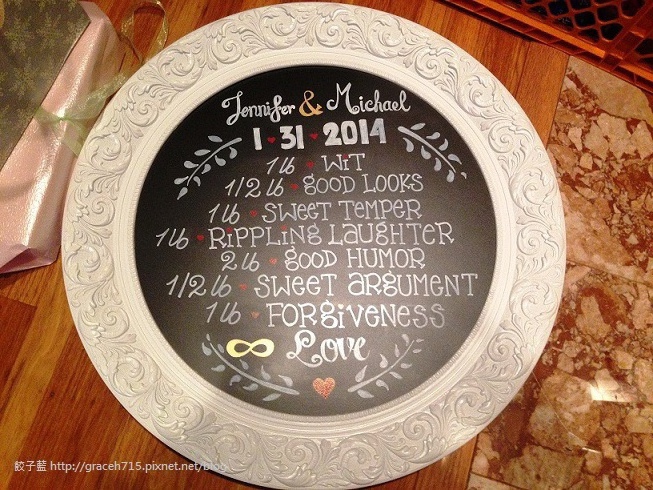 Jennifer & Michael
1 ♥ 31 ♥ 2014
1 lb ♥ WiT
1/2 lb ♥ gOOD LOOKS
1 lb ♥ SWEET TEMPER
1 lb ♥ RiPPLiNg LAUgHTER
2 lb ♥ gOOD HUMOR
1/2 lb ♥ SWEET ARgUMENT
1 lb ♥ FORgiVENESS
∞ Love
餃子藍 http://graceh715.pixnet.net/blog